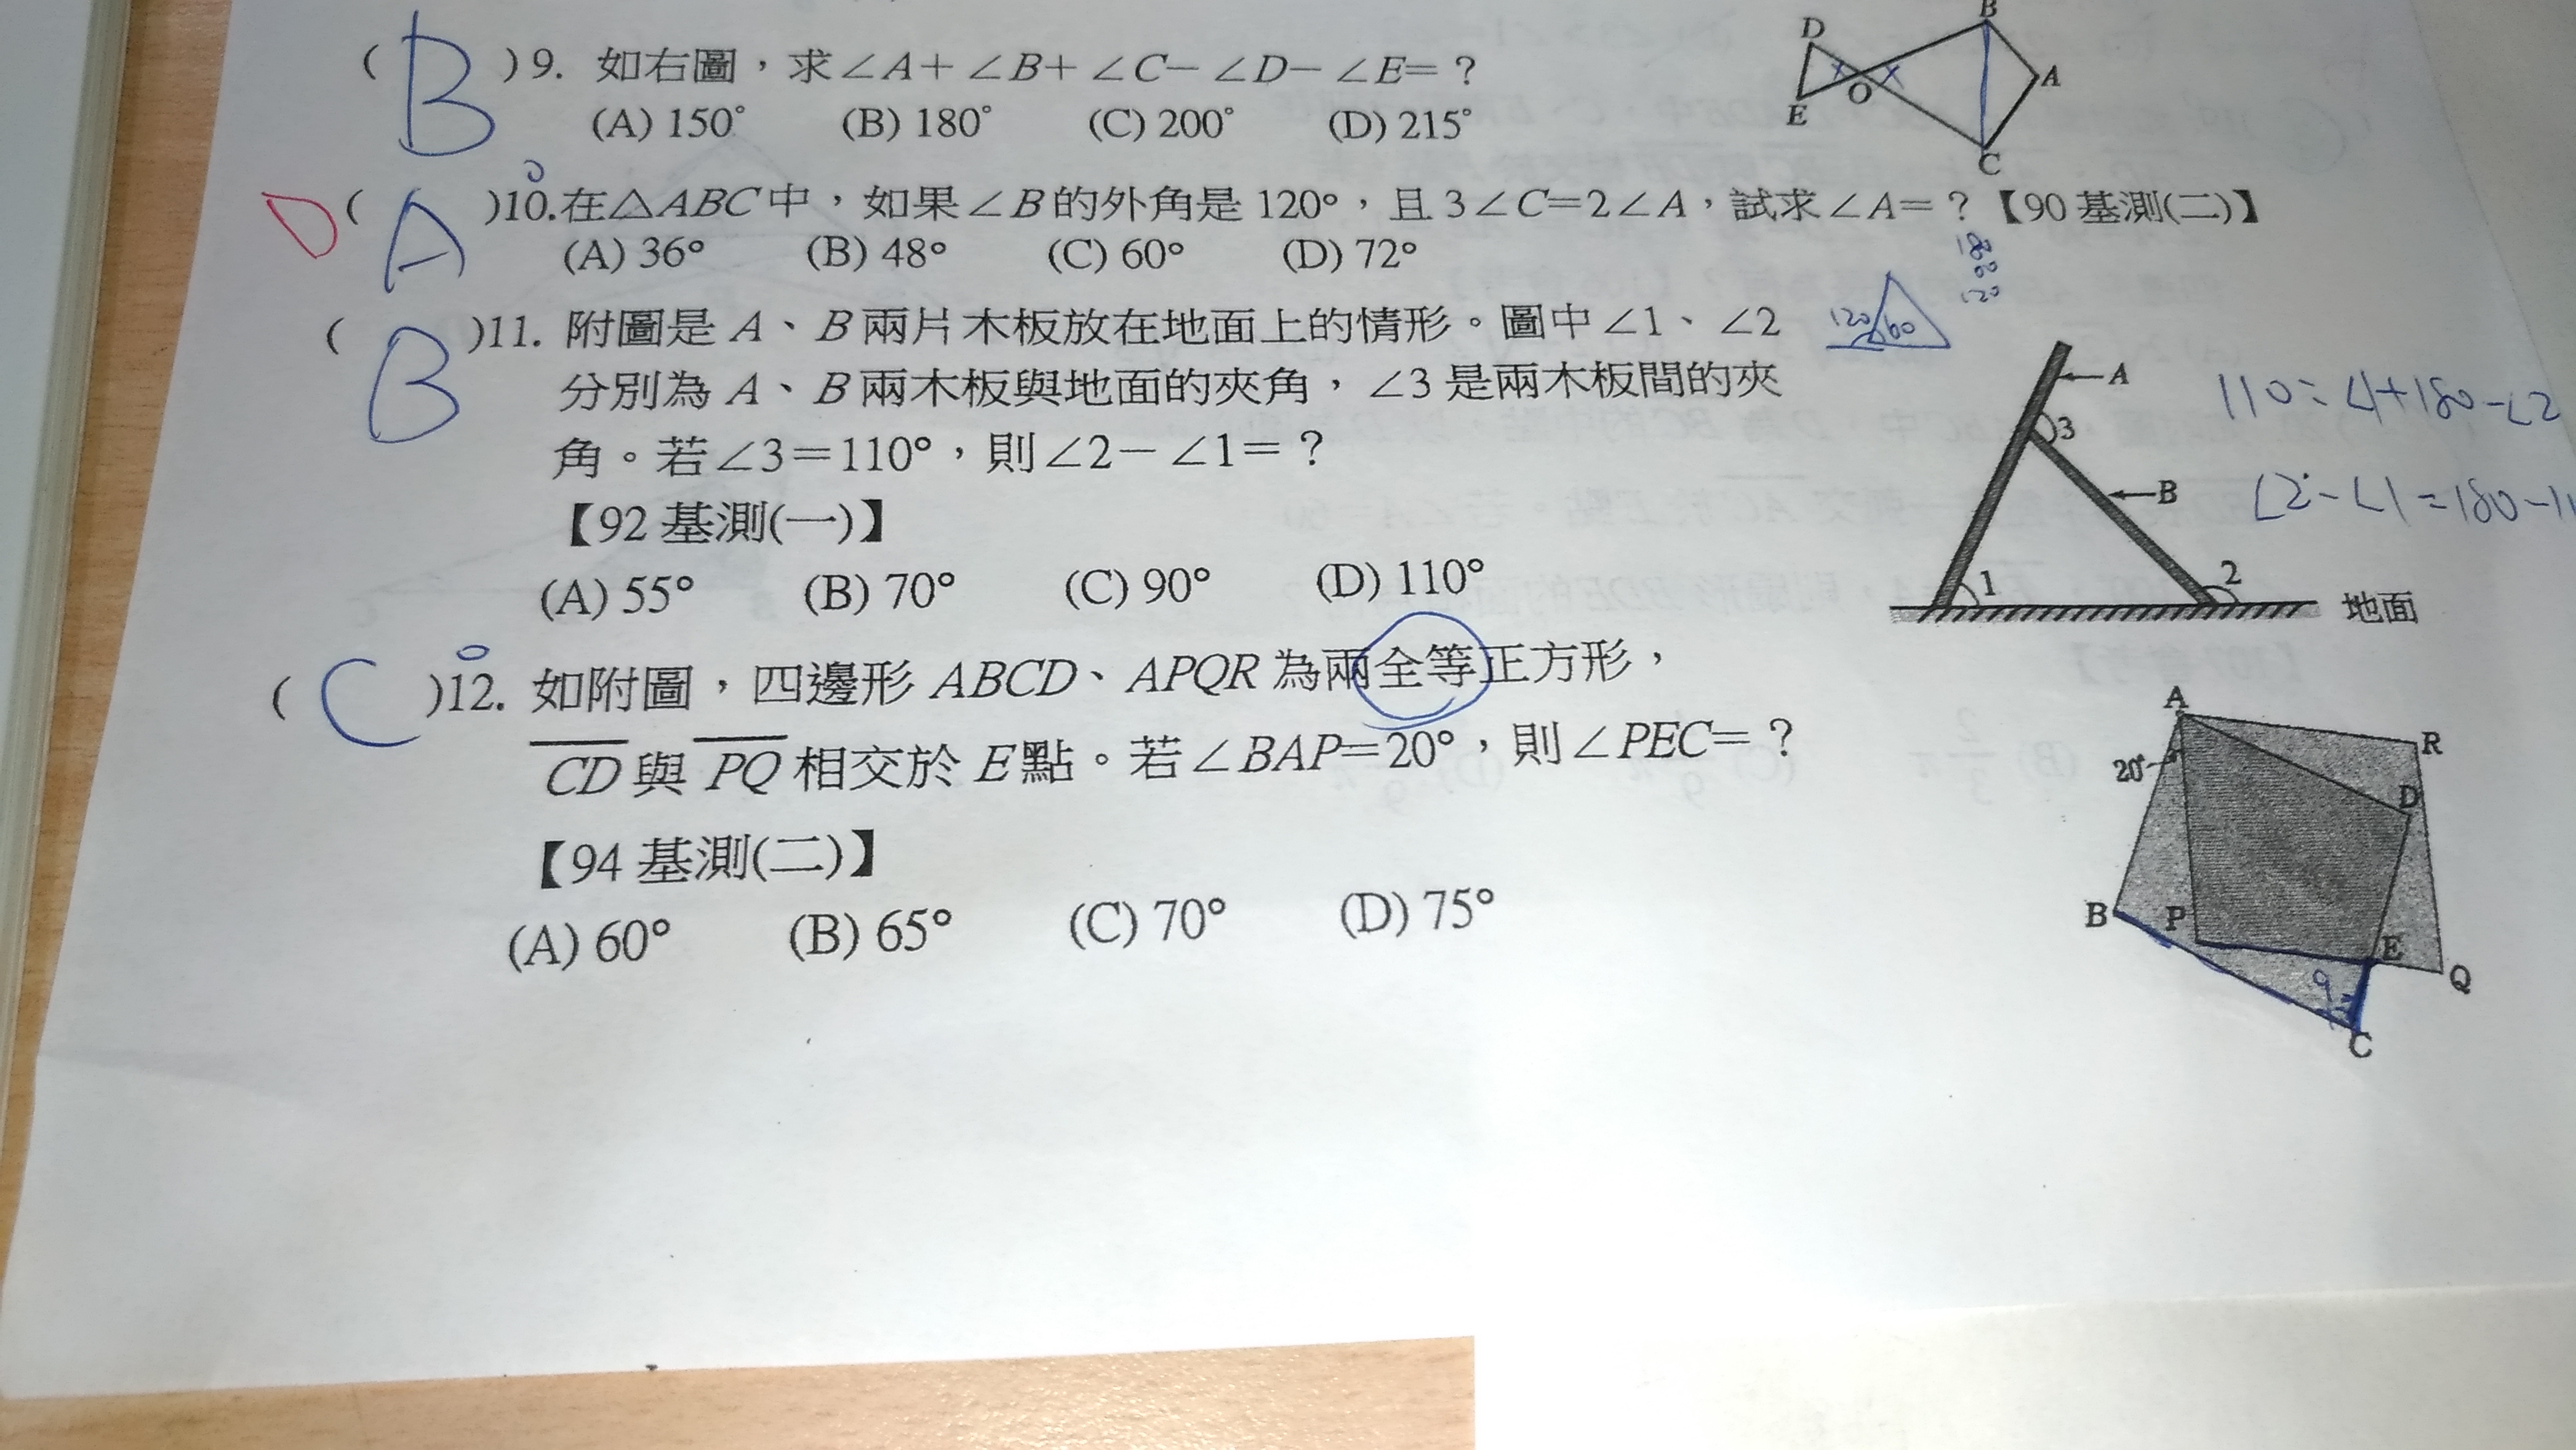 ( B )9. 如右圖，求∠A+∠B+∠C-∠D-∠E=？
(A) 150° (B) 180° (C) 200° (D) 215°
D B O A E C
D ( A )10.在△ABC中，如果∠B的外角是120°，且3∠C=2∠A，試求∠A=？【90基測(二)】
(A) 36° (B) 48° (C) 60° (D) 72°
120 60
( B )11. 附圖是A、B兩片木板放在地面上的情形。圖中∠1、∠2
分別為A、B兩木板與地面的夾角，∠3是兩木板間的夾
角。若∠3=110°，則∠2-∠1=？
【92基測(一)】
(A) 55° (B) 70° (C) 90° (D) 110°
A 3 B 1 2 地面
110=∠1+180-∠2
∠2-∠1=180-11
( C )12. 如附圖，四邊形ABCD、APQR為兩全等正方形，
CD與PQ相交於E點。若∠BAP=20°，則∠PEC=？
【94基測(二)】
(A) 60° (B) 65° (C) 70° (D) 75°
A R 20° D B P E Q C